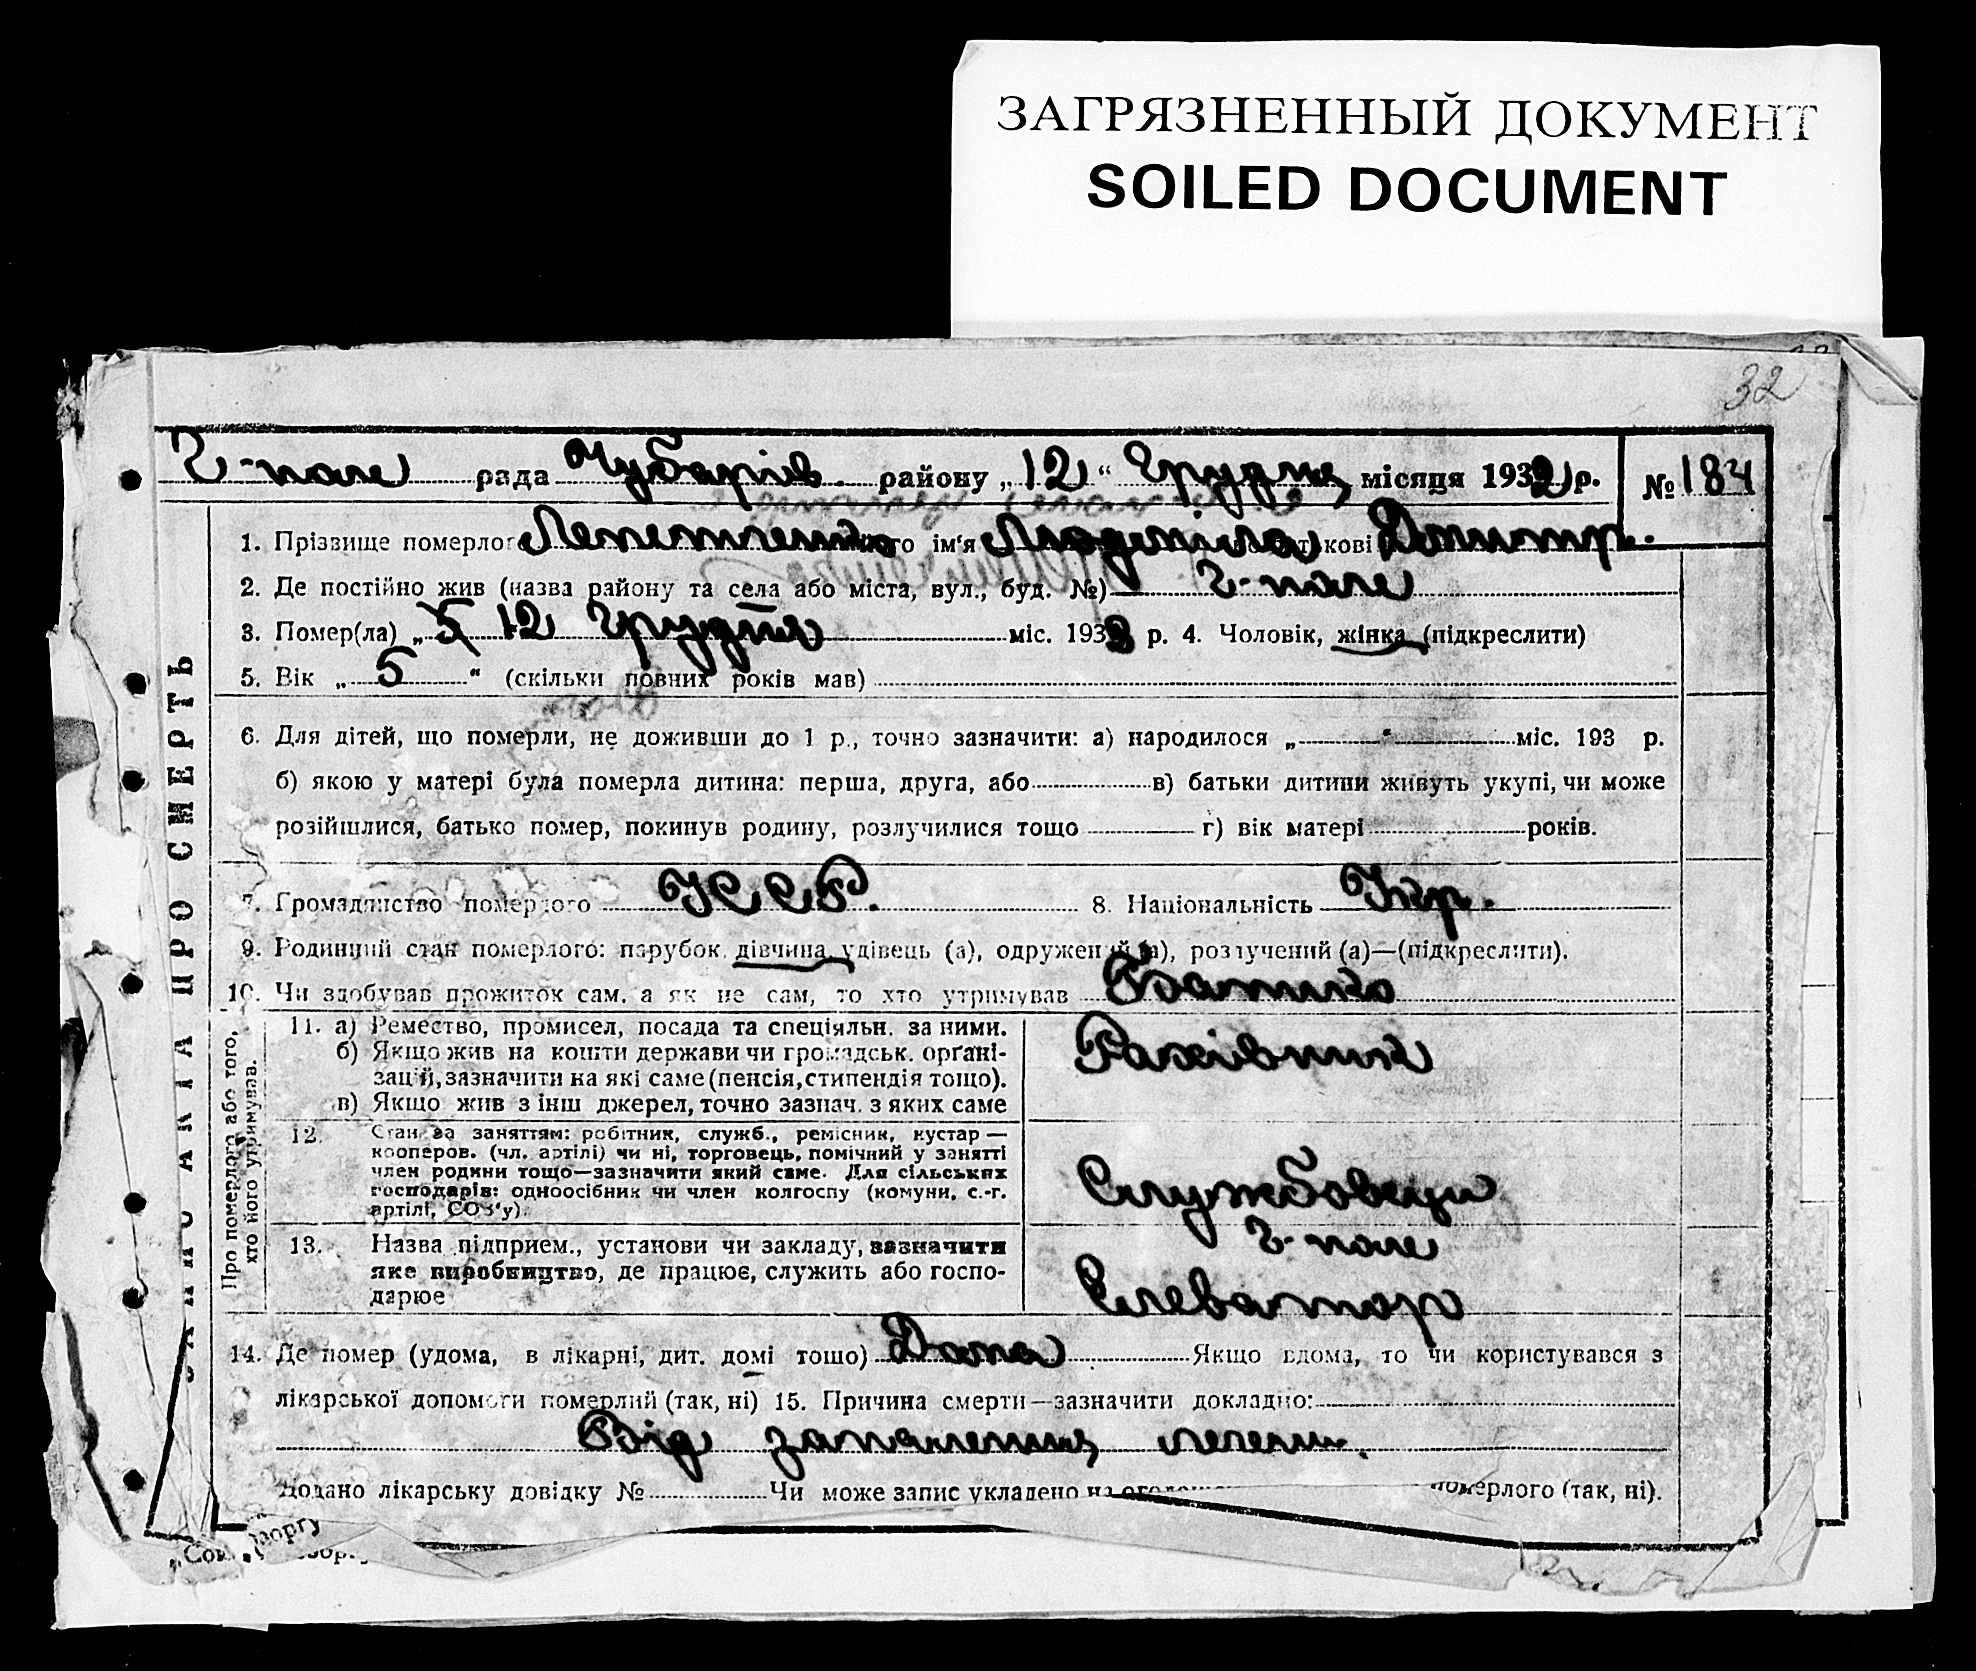 ЗАГРЯЗНЕННЫЙ ДОКУМЕНТ
SOILED DOCUMENT
32
Г-поле рада Чубарів. району „12“ Грудня місяця 1932 р. № 184
1. Прізвище померлог Лепетченко го ім‘я Людміла кові Дмитр.
2. Де постійно жив (назва району та села або міста, вул., буд. №) Г-поле
3. Помер(ла) „5 12 Грудня міс. 1932 р. 4. Чоловік, жінка (підкреслити)
5. Вік „ 5 “ (скільки повних років мав)
6. Для дітей, що померли, не доживши до 1 р., точно зазначити: а) народилося „ “ міс. 193 р.
б) якою у матері була померла дитина: перша, друга, або в) батьки дитини живуть укупі, чи може
розійшлися, батько помер, покинув родину, розлучилися тощо г) вік матері років.
7. Громадянство померлого УССР. 8. Національність Укр.
9. Родинний стан померлого: парубок, дівчина, удівець (а), одружений (а), розлучений (а)—(підкреслити).
10. Чи здобував прожиток сам, а як не сам, то хто утримував Батько
ЗАПИС АКТА ПРО СМЕРТЬ
Про померлого або того,
хто його утримував.
11. а) Ремество, промисел, посада та спеціяльн. за ними.
б) Якщо жив на кошти держави чи громадськ. орґані-
зацій, зазначити на які саме (пенсія, стипендія тощо).
в) Якщо жив з інш джерел, точно зазнач. з яких саме
Рахівник
12. Стан за заняттям: робітник, служб., ремісник, кустар —
кооперов. (чл. артілі) чи ні, торговець, помічний у занятті
член родини тощо—зазначити який саме. Для сільських
господарів: одноосібник чи член колгоспу (комуни, с.-г.
артілі, СОЗ‘у).
Службовець
13. Назва підприєм., установи чи закладу, зазначити
яке виробництво, де працює, служить або госпо-
дарює
Г-поле
Елеватор
14. Де помер (удома, в лікарні, дит. домі тощо) Дома Якщо вдома, то чи користувався з
лікарської допомоги померлий (так, ні) 15. Причина смерти—зазначити докладно:
Від запалення легень.
Додано лікарську довідку № Чи може запис укладено на померлого (так, ні).